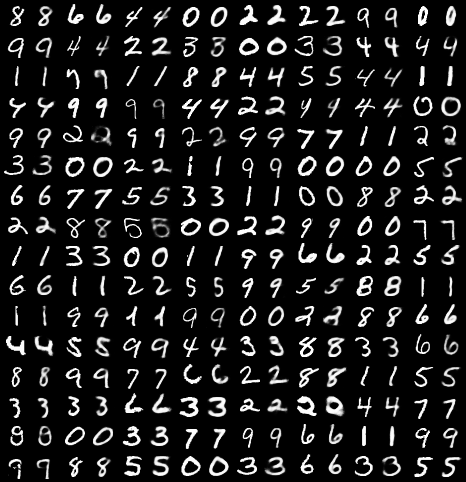 8 8 6 6 4 4 0 0 2 2 2 2 9 9 0 0
9 9 4 4 2 2 3 3 0 0 3 3 4 4 4 4
1 1 7 7 1 1 8 8 4 4 5 5 4 4 1 1
4 4 9 9 9 9 4 4 2 2 4 4 4 4 0 0
9 9 2 2 9 9 2 2 9 9 7 7 1 1 2 2
3 3 0 0 2 2 1 1 9 9 0 0 0 0 5 5
6 6 7 7 5 5 3 3 1 1 0 0 8 8 2 2
2 2 8 8 5 5 0 0 2 2 9 9 0 0 7 7
1 1 3 3 0 0 1 1 9 9 6 6 2 2 5 5
6 6 1 1 2 2 5 5 9 9 5 5 8 8 1 1
1 1 9 9 1 1 9 9 0 0 2 2 8 8 6 6
4 4 5 5 9 9 4 4 3 3 8 8 3 3 6 6
8 8 9 9 7 7 6 6 2 2 8 8 1 1 5 5
3 3 3 3 6 6 3 3 2 2 2 0 4 4 7 7
8 8 0 0 3 3 7 7 9 9 6 6 1 1 9 9
9 9 8 8 5 5 0 0 3 3 6 6 3 3 5 5